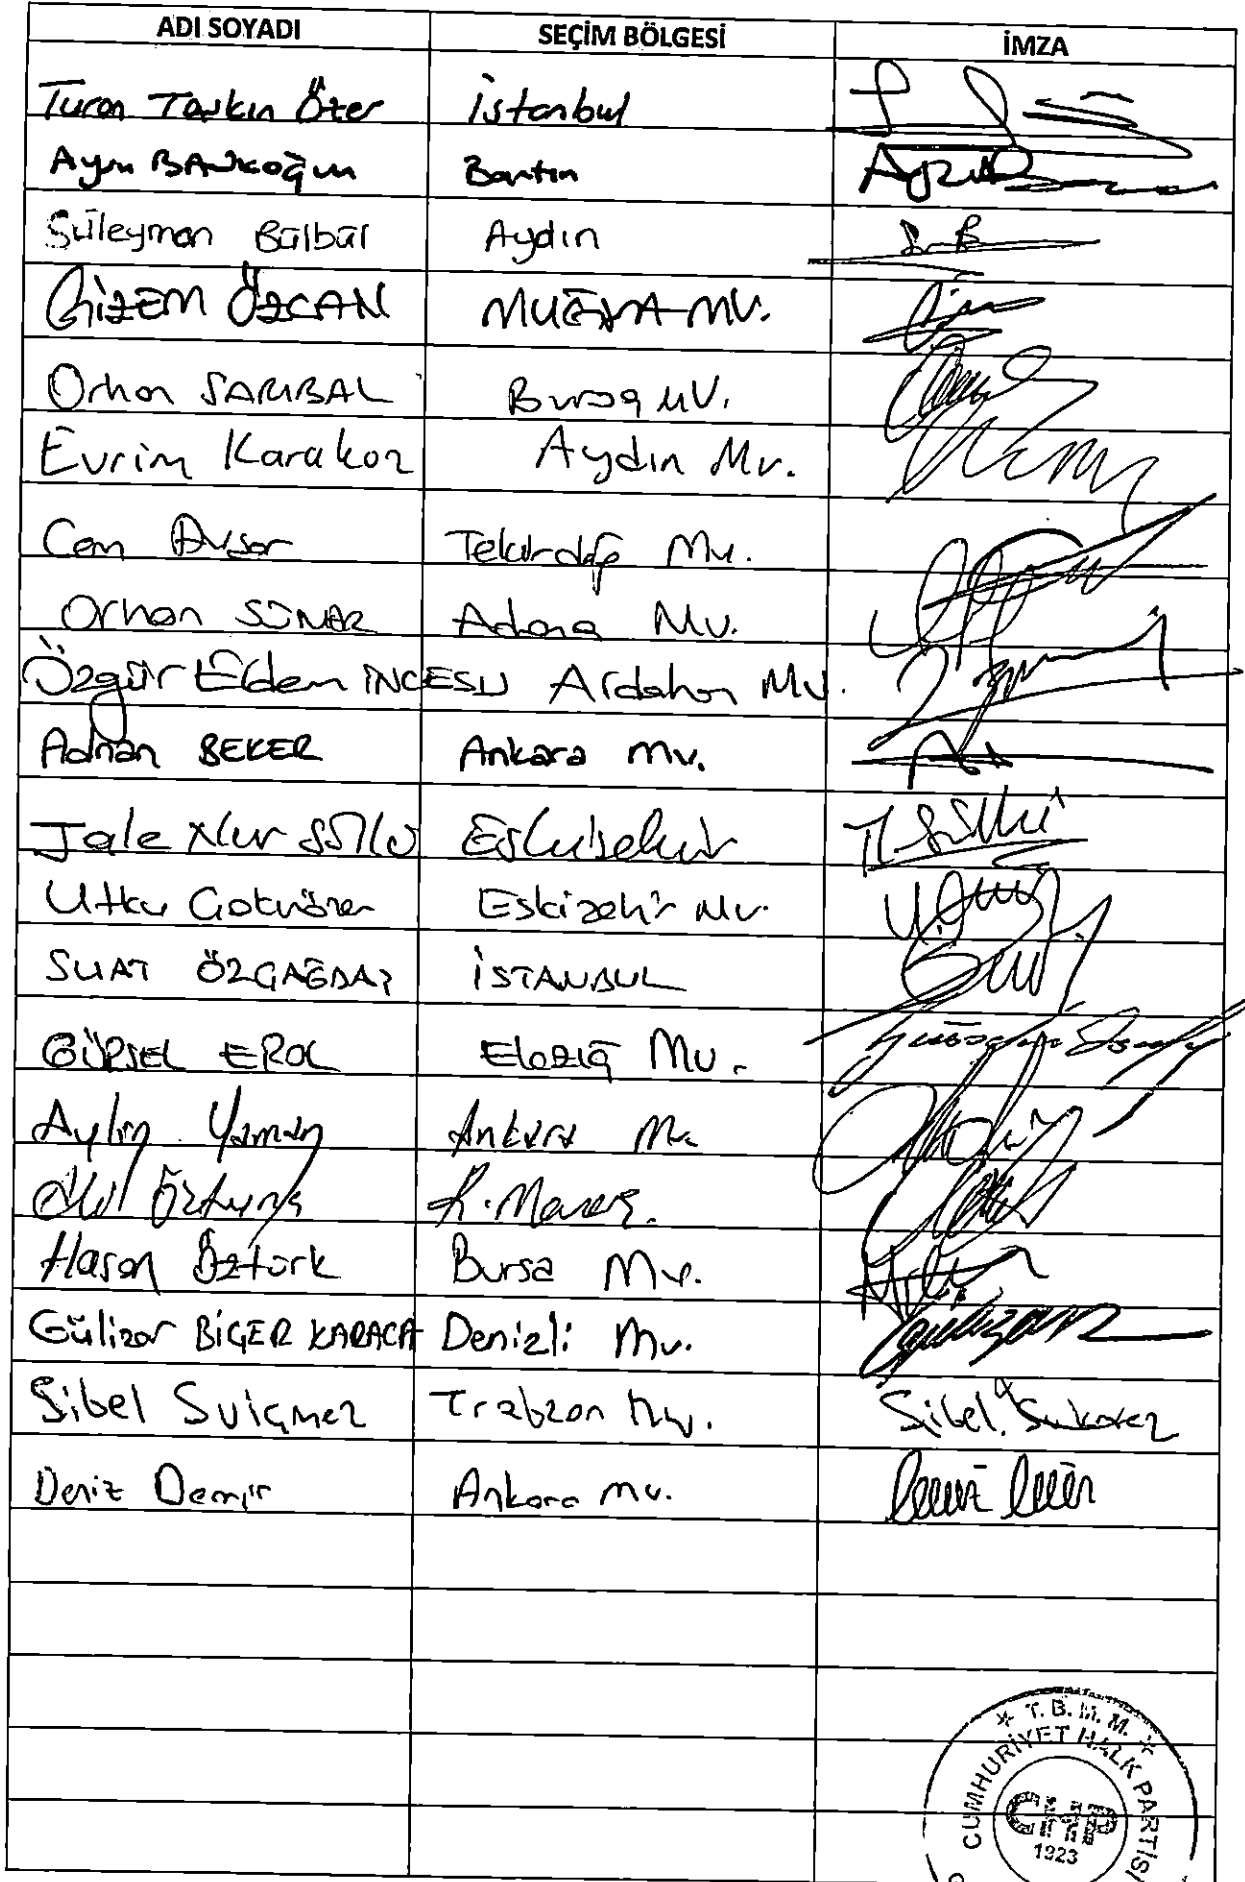 ADI SOYADI SEÇİM BÖLGESİ İMZA
Turan Taşkın Özer İstanbul
Aysu BANKOĞLU Bartın
Süleyman Bülbül Aydın
GİZEM ÖZCAN MUĞLA MV.
Orhan SARIBAL Bursa MV.
Evrim Karakoz Aydın Mv.
Cem Avşar Tekirdağ Mv.
Orhan SÜMER Adana Mv.
Özgür Erdem İNCESU Ardahan Mv.
Adnan BEKER Ankara mv.
Jale Nur SÜLLÜ Eskişehir
Utku Çakırözer Eskişehir Mv.
SUAT ÖZÇAĞDAŞ İSTANBUL
GÜRSEL EROL Elazığ Mv.
Aylin Yaman Ankara Mv.
Ali Öztunç K.Maraş.
Hasan Öztürk Bursa Mv.
Gülizar BİÇER KARACA Denizli Mv.
Sibel Suiçmez Trabzon Mv. Sibel Suiçmez
Deniz Demir Ankara mv.
T. B. M. M.
CUMHURİYET HALK PARTİSİ
CHP
1923